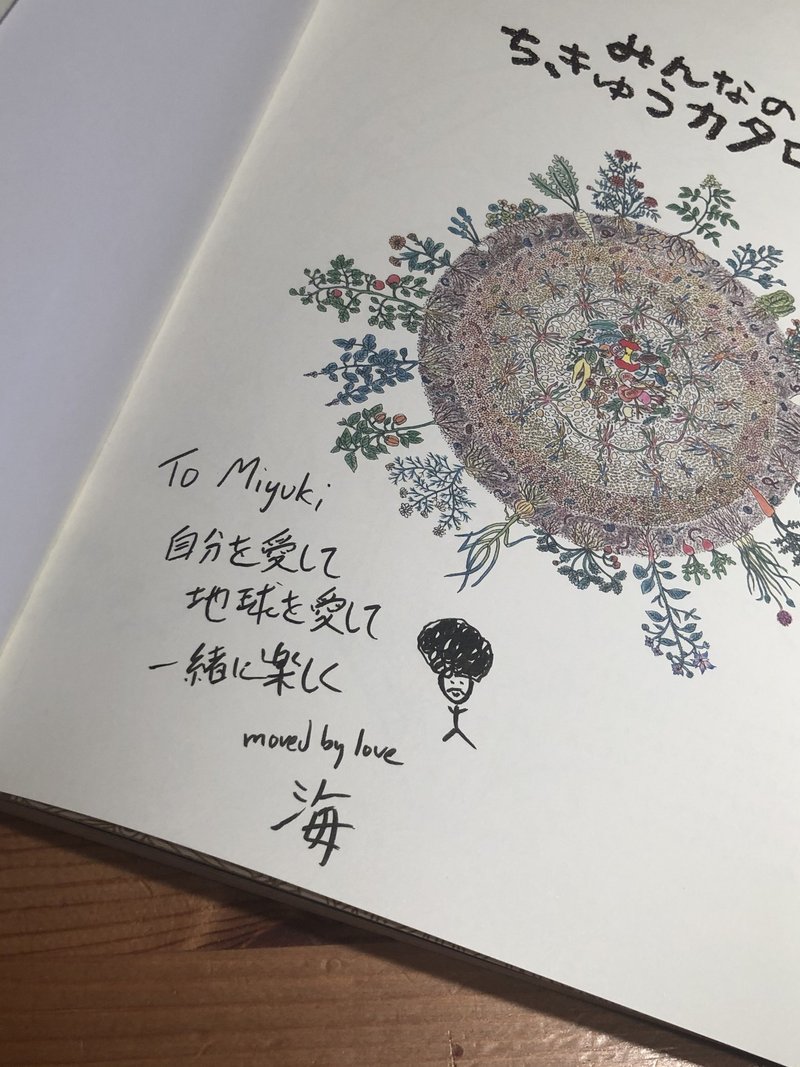 みんなの
ちきゅうカタロ
To Miyuki
自分を愛して
地球を愛して
一緒に楽しく
moved by love
海